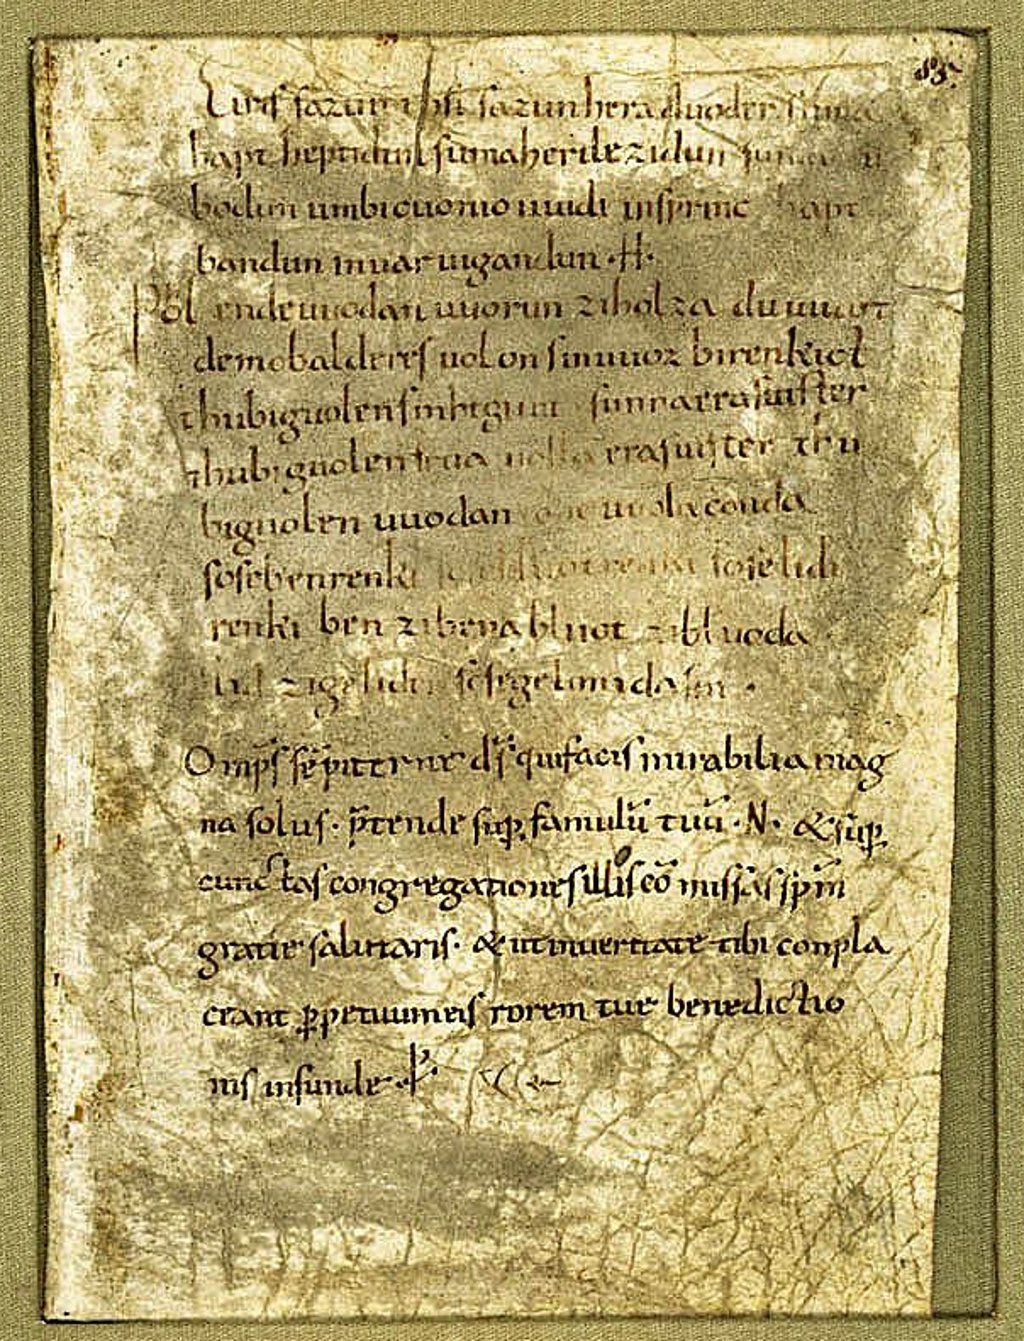 Eiris sazun idisi sazun hera duoder suma
hapt heptidun sumaherilezidun suma clu
bodun umbicuonio uuidi insprinc hapt
bandun inuar uigandun ·H·
Phol endeuuodan uuorun ziholza du uuart
demobalderes uolon sinuuoz birenkict
thubiguolen sinhtgunt · sunnaerasuister
thubiguolen friia uolla erasuister thu
biguolen uuodan sohe uuolaconda
sosebenrenki sosebluotrenki soselidi
renki ben zibena bluot zibluoda
lid zigeliden sosegelimidasin ·
Omp̄s sēpiterne ds̄ quifacis mirabilia mag
na solus · p̄tende sup̱ famulū tuū ·N· &sup̱
cunctas congregationes illis cō missas sp̄m
gratie salutaris · &utinueritate tibi conpla
ceant ꝑpetuumeis rorem tue benedictio
nis infunde · ꝑ ·
85